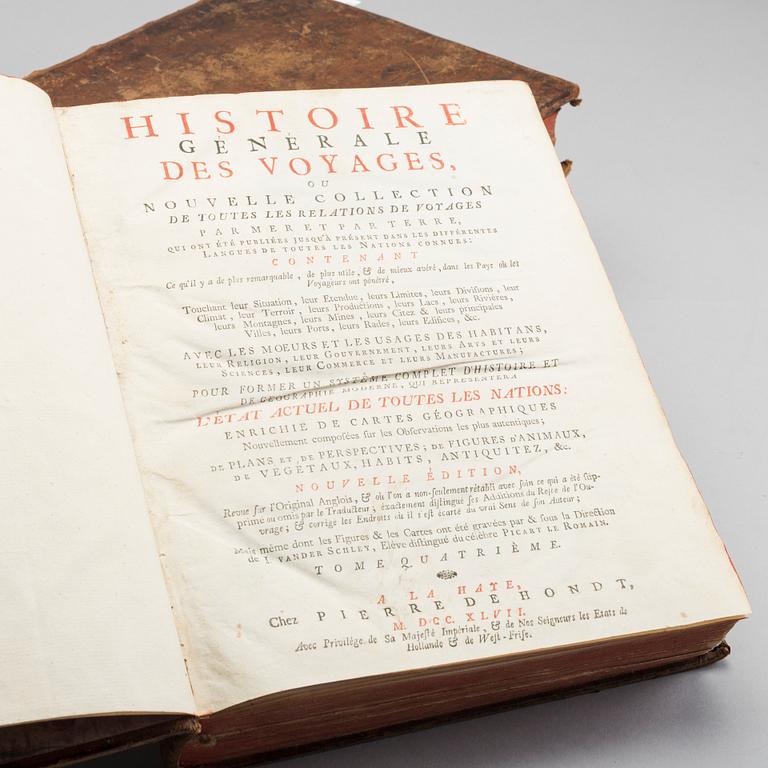 HISTOIRE
GÉNÉRALE
DES VOYAGES,
OU
NOUVELLE COLLECTION
DE TOUTES LES RELATIONS DE VOYAGES
PAR MER ET PAR TERRE,
QUI ONT ÉTÉ PUBLIÉES JUSQU'À PRÉSENT DANS LES DIFFÉRENTES
LANGUES DE TOUTES LES NATIONS CONNUES:
CONTENANT
Ce qu'il y a de plus remarquable, de plus utile, & de mieux avéré, dans les Pays où les
Voyageurs ont pénétré,
Touchant leur Situation, leur Etendue, leurs Limites, leurs Divisions, leur
Climat, leur Terroir, leurs Productions, leurs Lacs, leurs Rivières,
leurs Montagnes, leurs Mines, leurs Citez & leurs principales
Villes, leurs Ports, leurs Rades, leurs Edifices, &c.
AVEC LES MOEURS ET LES USAGES DES HABITANS,
LEUR RELIGION, LEUR GOUVERNEMENT, LEURS ARTS ET LEURS
SCIENCES, LEUR COMMERCE ET LEURS MANUFACTURES;
POUR FORMER UN SYSTÈME COMPLET D'HISTOIRE ET
DE GÉOGRAPHIE MODERNE, QUI REPRÉSENTERA
L'ÉTAT ACTUEL DE TOUTES LES NATIONS:
ENRICHIE DE CARTES GÉOGRAPHIQUES
Nouvellement composées sur les Observations les plus autentiques;
DE PLANS ET DE PERSPECTIVES; DE FIGURES D'ANIMAUX,
DE VÉGÉTAUX, HABITS, ANTIQUITEZ, &c.
NOUVELLE ÉDITION,
Revue sur l'Original Anglois, & où l'on a non-seulement rétabli avec soin ce qui a été sup-
primé ou omis par le Traducteur; exactement distingué ses Additions du Reste de l'Ou-
vrage; & corrigé les Endroits où il s'est écarté du vrai Sens de son Auteur;
Mais même dont les Figures & les Cartes ont été gravées par & sous la Direction
de J. VANDER SCHLEY, Elève distingué du célèbre PICART LE ROMAIN.
TOME QUATRIÈME.
A LA HAYE,
Chez PIERRE DE HONDT,
M. DCC. XLVII.
Avec Privilége de Sa Majesté Impériale, & de Nos Seigneurs les Etats de
Hollande & de West-Frise.